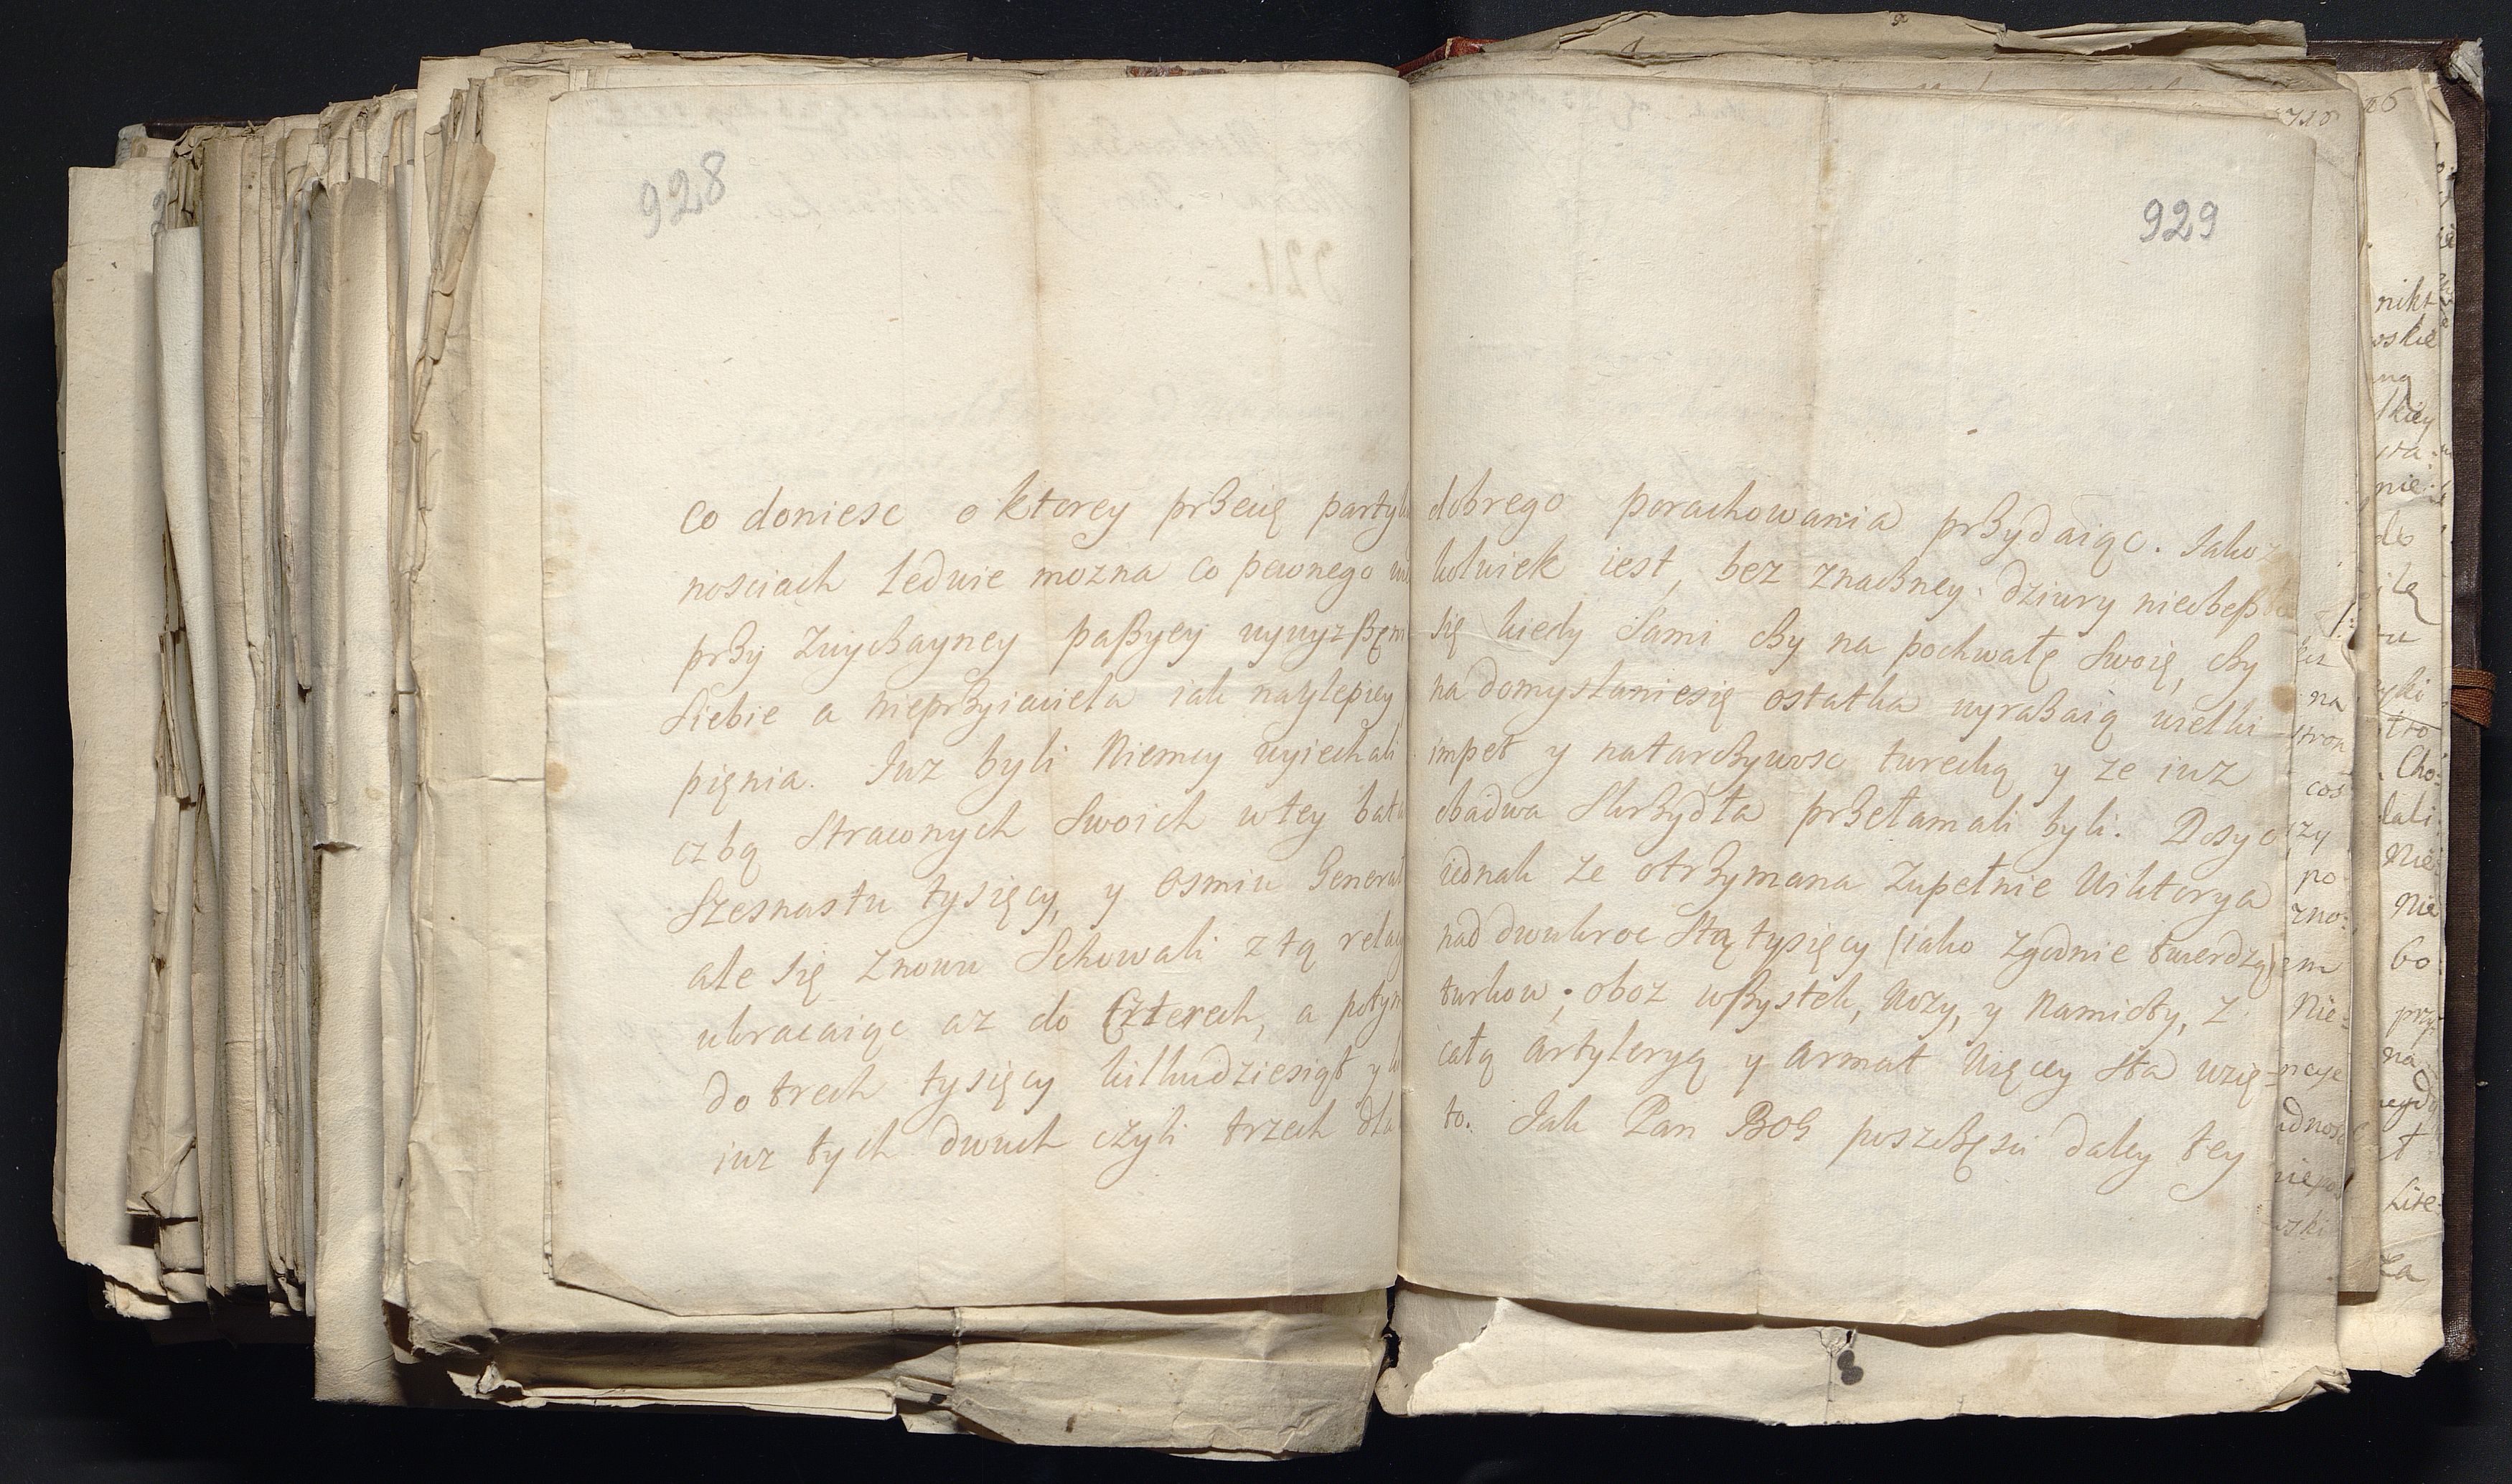 928
co doniesc o ktorey przecię party
nosciach ledwie mozna co pewnego
przy zwyczayney paßyey wywyzßęn
siebie a nieprzyiaciela iak naylepiey
pięnia. Juz byli Niemcy wyiechali
czbą straconych swoich w tey bata
szesnastu tysięcy, y osmiu General
ale się znowu schowali z tą relac
ukracaiąc az do czterech, a potym
do trech tysięcy kilkudziesiąt y
iuz tych dwuch czyli trzech dla
929
dobrego porachowania przydaiąc. Jakoz
kolwiek iest, bez znaczney dziury nieobeßło
się kiedy sami czy na pochwałę swoię, czy
na domyslaniesię ostatka wyrazaią wielki
impet y natarczywosc turecką y ze iuz
obadwa skrzydła przełamali byli. Dosyc
iednak ze otrzymana zupełnie wiktorya
nad dwukroc stą tysięcy (iako zgodnie twierdzą)
turkow; oboz wßystek, wozy, y namioty, z
całą artyleryą y armat więcey sta wzię-
to. Jak Pan BOG poszczęsci daley tey
710
26
nikt
oskie
lkiey
nie
do
tu
na
stron
cos
Cho:
dali
po
zno:
Nie
bo
przy
na
t
Lite:
za